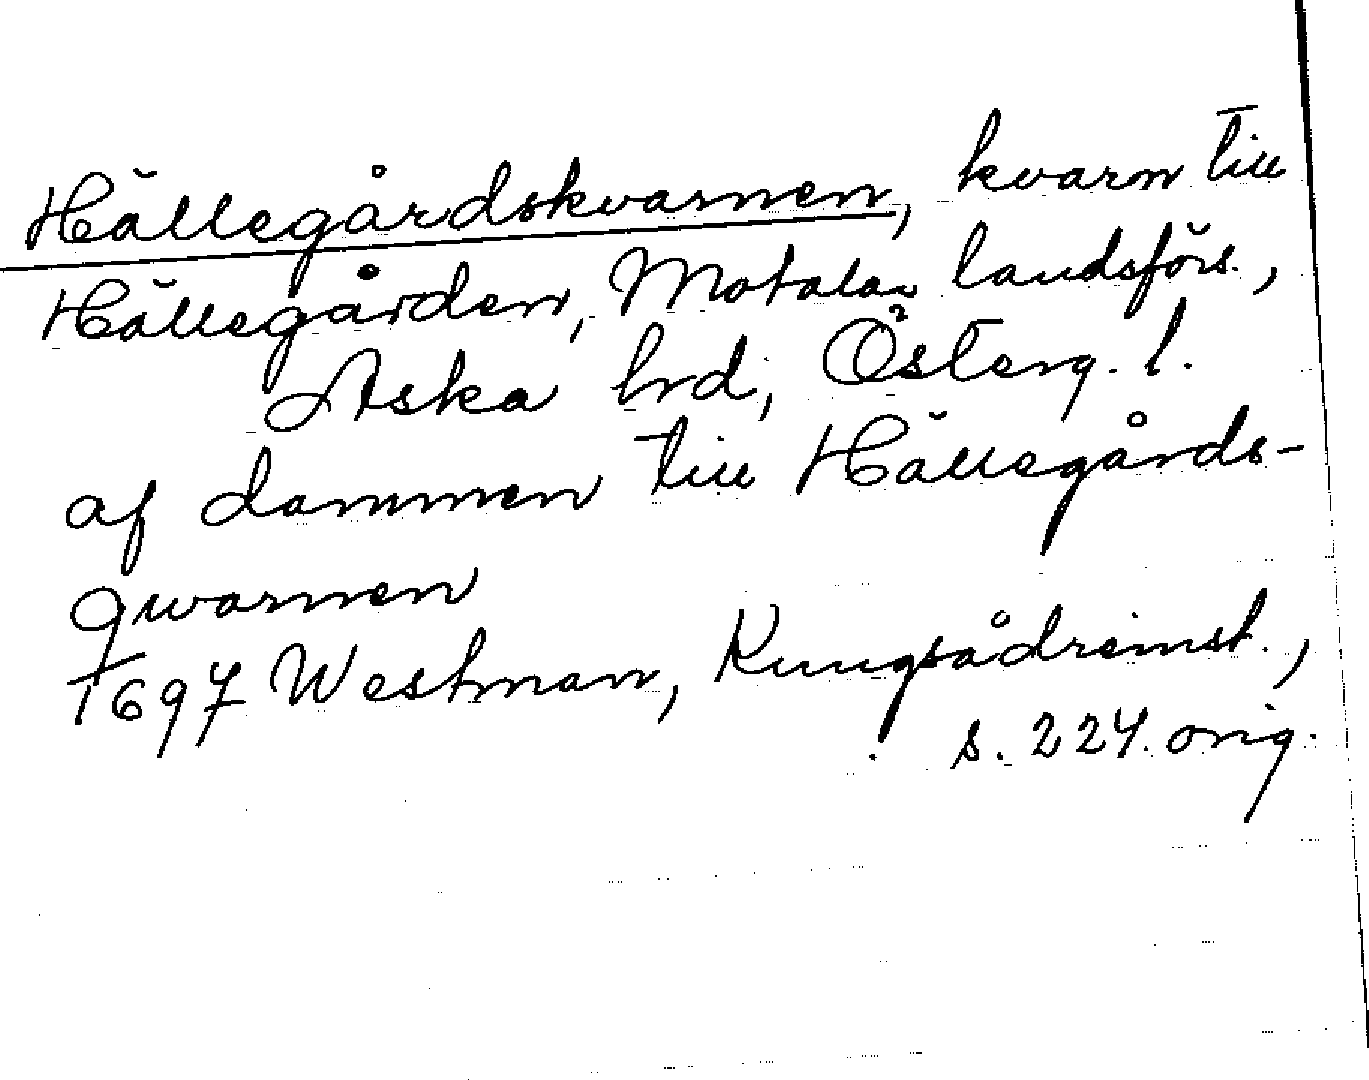 Hällegårdskvarnen, kvarn till
Hällegården, Motala landsförs.,
Aska hrd, Österg. l.
af dammen till Hällegårds-
qwarnen
1697 Westman, Kungsådreinst.,
s. 224. orig.